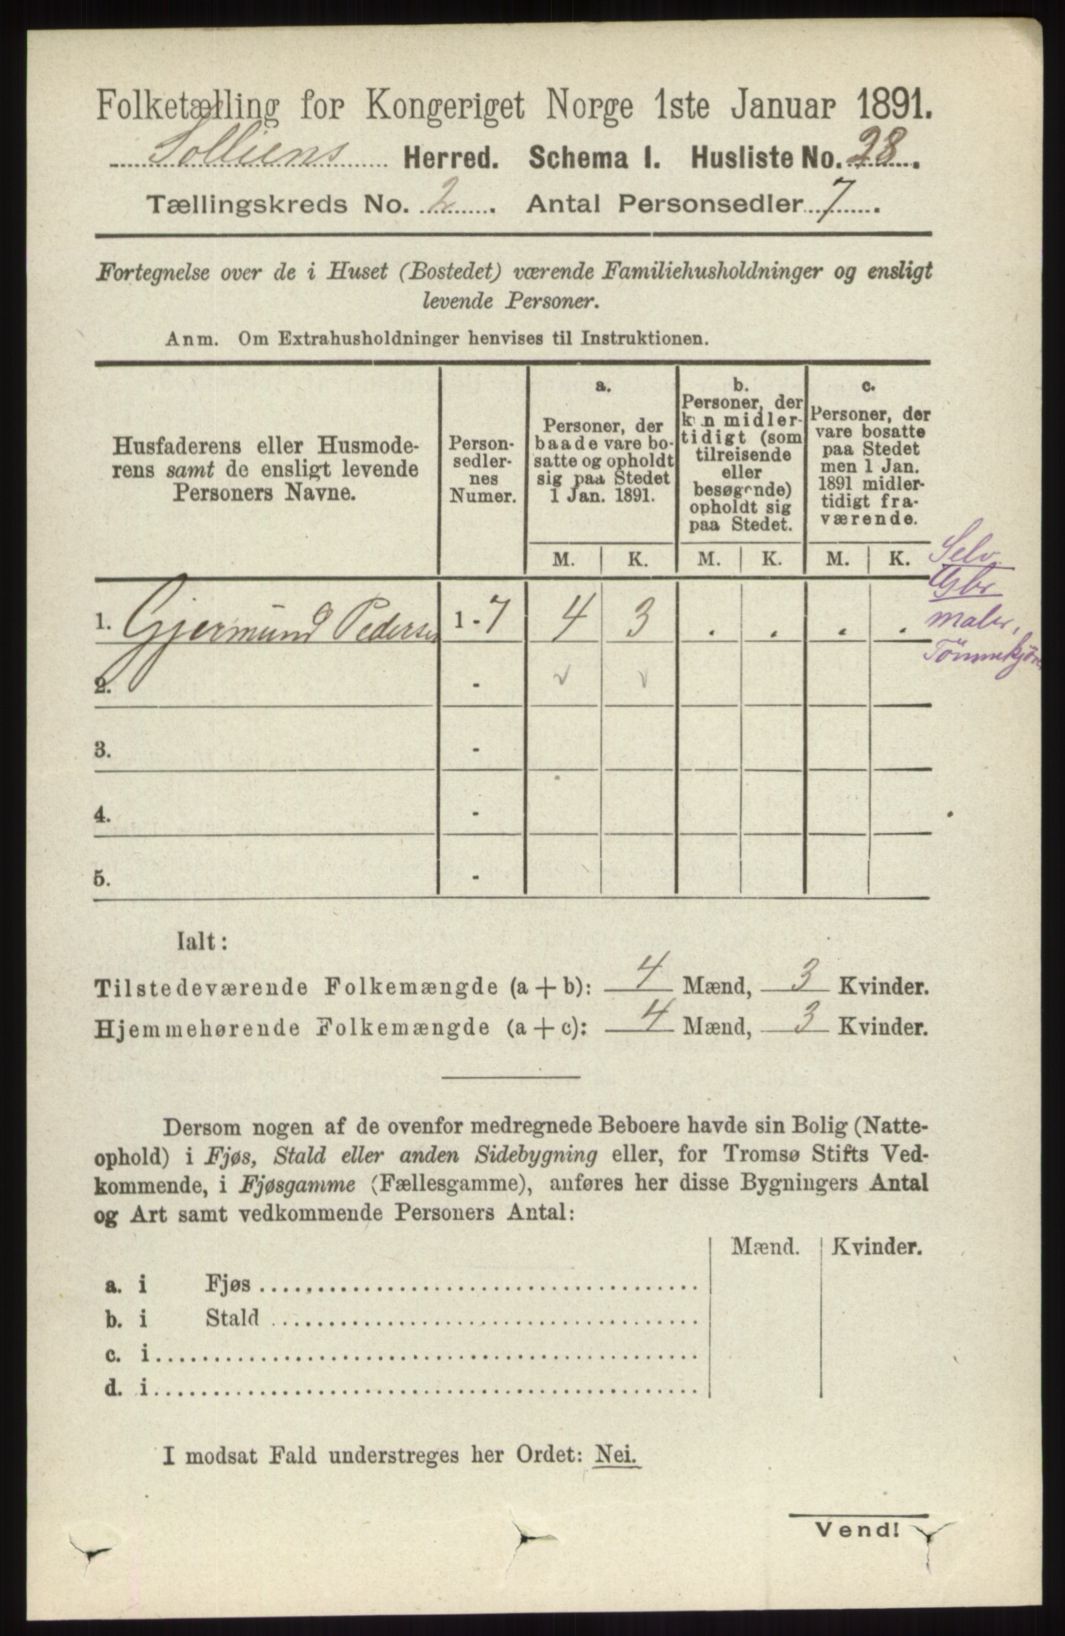 Folketælling for Kongeriget Norge 1ste Januar 1891.
Solliens Herred. Schema I. Husliste No. 28.
Tællingskreds No. 2. Antal Personsedler 7.
Fortegnelse over de i Huset (Bostedet) værende Familiehusholdninger og ensligt
levende Personer.
Anm. Om Extrahusholdninger henvises til Instruktionen.
Husfaderens eller Husmode-
rens samt de ensligt levende
Personers Navne.
Person-
sedler-
nes
Numer.
a.
Personer, der
baade vare bo-
satte og opholdt
sig paa Stedet
1 Jan. 1891.
b.
Personer, der
kun midler-
tidigt (som
tilreisende
eller
besøgende)
opholdt sig
paa Stedet.
c.
Personer, der
vare bosatte
paa Stedet
men 1 Jan.
1891 midler-
tidigt fra-
værende.
M. K. M. K. M. K.
Selv.
Gbr
maler,
Tømmekjører
1. Gjermund Pedersen 1-7 4 3 . . . .
2. - v v
3. -
4. -
5. -
Ialt:
Tilstedeværende Folkemængde (a + b): 4 Mænd, 3 Kvinder.
Hjemmehørende Folkemængde (a + c): 4 Mænd, 3 Kvinder.
Dersom nogen af de ovenfor medregnede Beboere havde sin Bolig (Natte-
ophold) i Fjøs, Stald eller anden Sidebygning eller, for Tromsø Stifts Ved-
kommende, i Fjøsgamme (Fællesgamme), anføres her disse Bygningers Antal
og Art samt vedkommende Personers Antal:
Mænd. Kvinder.
a. i Fjøs
b. i Stald
c. i
d. i
I modsat Fald understreges her Ordet: Nei.
Vend!